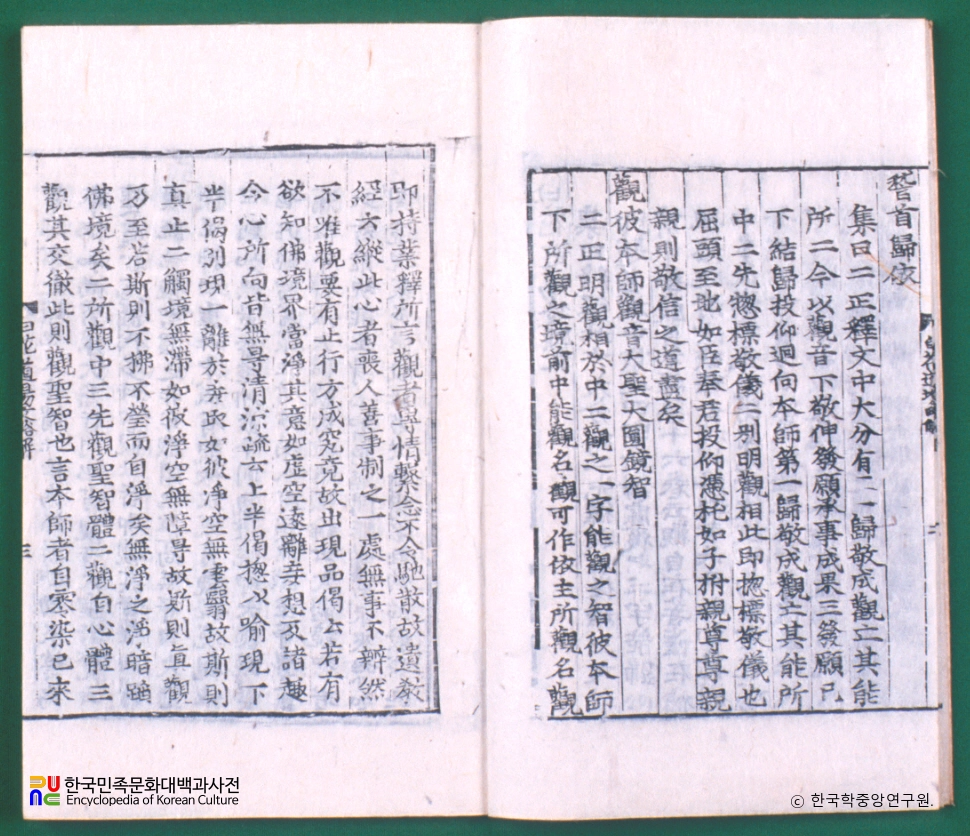 稽首歸依
集曰二正釋文中大分有二一歸敬成觀二其能
所二今以觀音下敬伸發願承事成果三發願已
下結歸投仰迴向本師第一歸敬成觀二其能所
中二先惣標敬儀二別明觀相此即惣標敬儀也
屈頭至地如臣 君投仰憑托如子拊親尊尊親
親則敬信之道盡矣
觀彼本師觀音大聖大圓鏡智
二正明觀相於中二觀之一字能觀之智彼本師
下所觀之境前中能觀名觀可作依主所觀名觀
即持業釋所言觀者專情繫念不令馳散故遺教
經云縱此心者喪人善事制之一處無事不辨然
不唯觀要有止行方成究竟故出現品偈云若有
欲知佛境界當淨其意如虛空遠離妄想及諸趣
令心所向皆無㝵清涼疏云上半偈揔以喻現下
半偈別現一離於妄取如彼淨空無雲翳故斯則
真止二觸境無滯如彼淨空無障㝵故斯則真觀
乃至若斯則不拂不瑩而自淨矣無淨之淨暗蹈
佛境矣二所觀中三先觀聖智體二觀自心體三
觀其交徹此則觀聖智也言本師者自零染已來
白花道場文略解
三
한국민족문화대백과사전
Encyclopedia of Korean Culture
© 한국학중앙연구원.